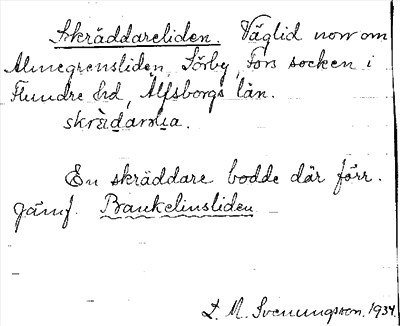 Skräddareliden. Väglid norr om
Almegrensliden, Sörby, Fors socken i
Flundre hd, Älfsborgs län.
skrädarnlia.
En skräddare bodde där förr.
Jämf. Brankelinsliden
L. M. Svenungsson. 1934.